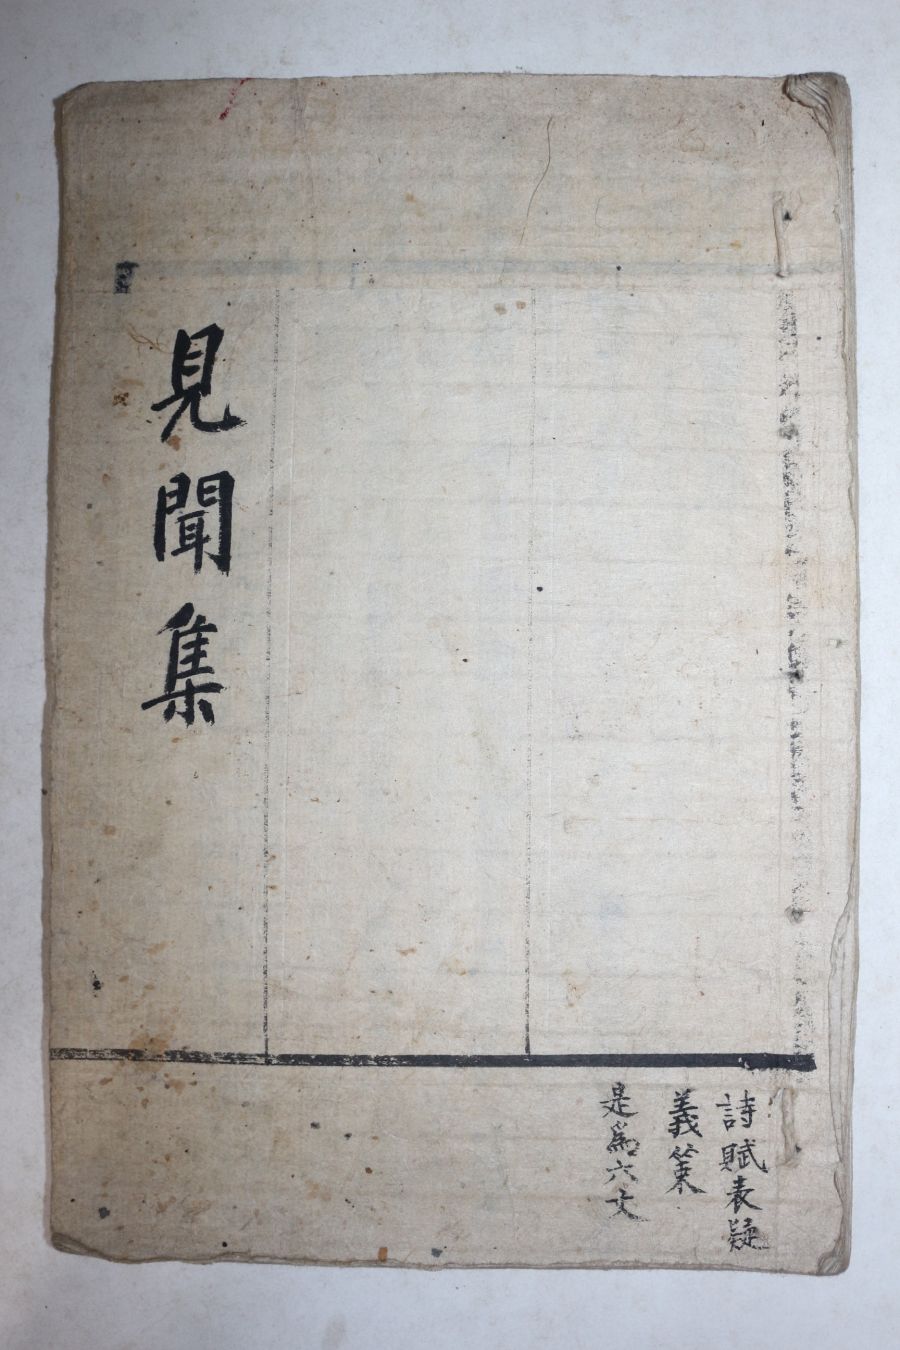 詩賦表疑
義策
是為六文
見聞集